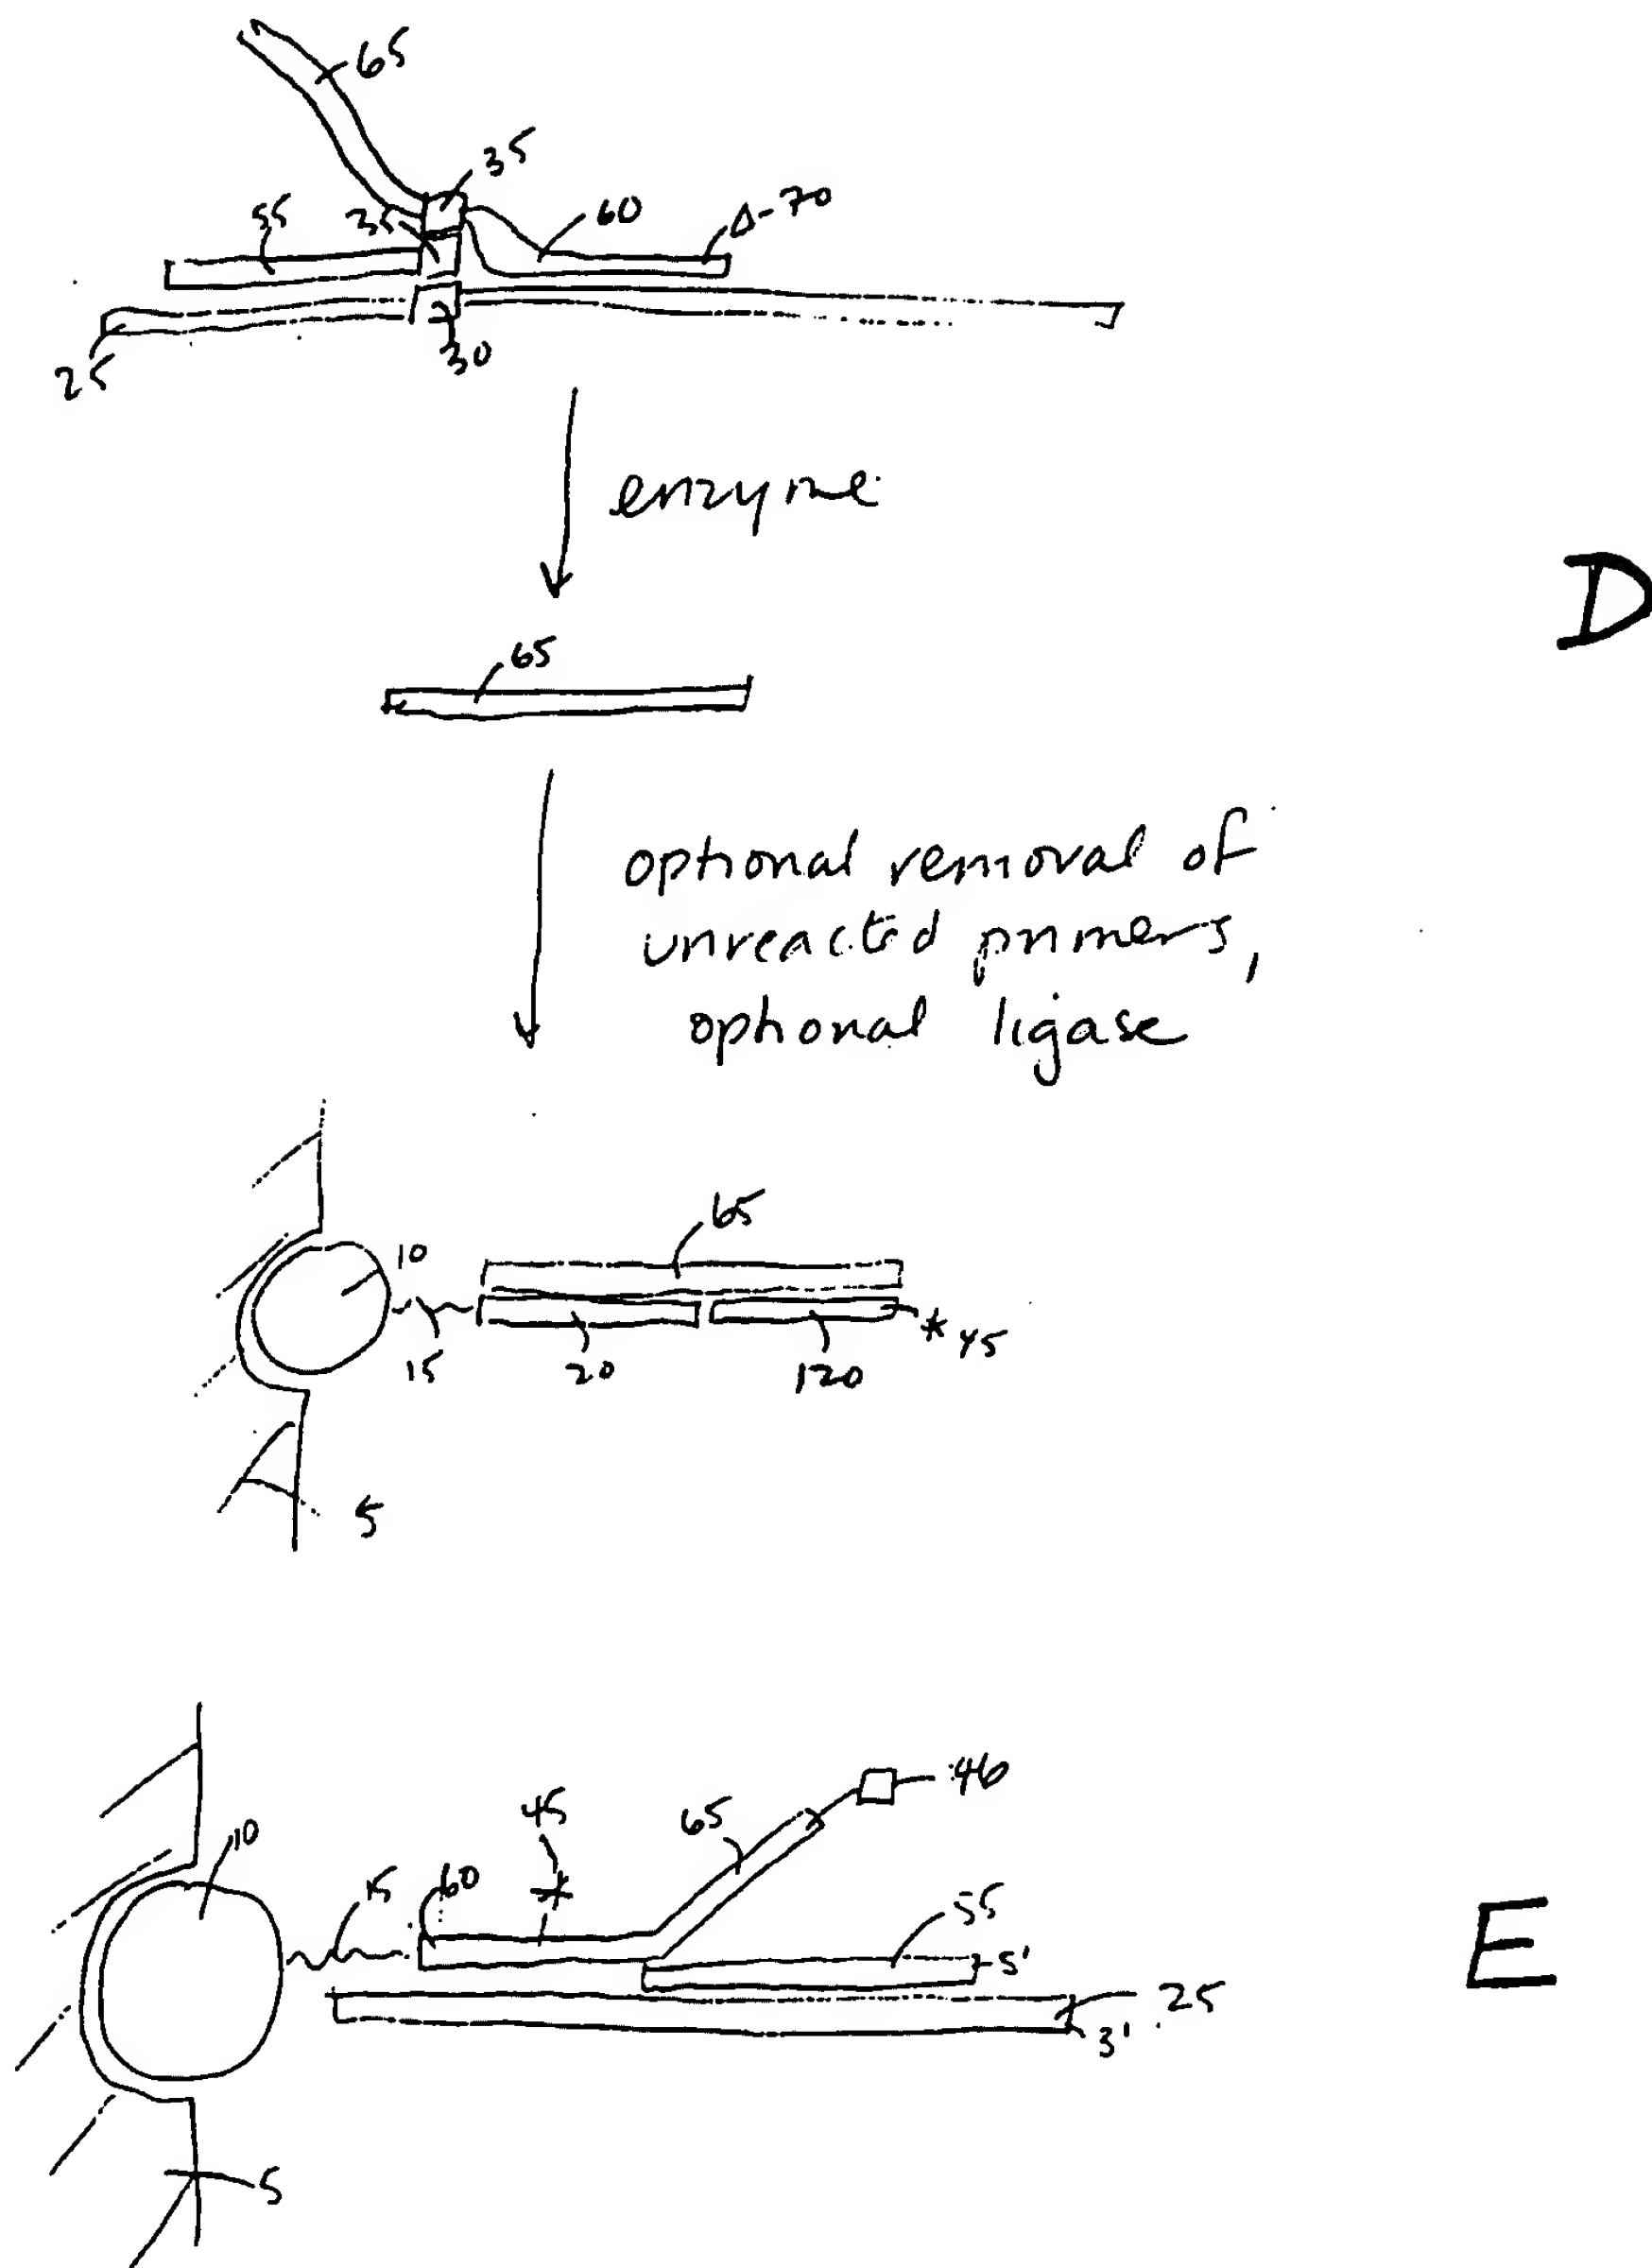 65
35
55
35
60
Δ-70
25
30
enzyme
D
65
optional removal of
unreacted primers,
optional ligase
65
10
15
20
120
* 45
5
46
45
65
10
15
60
*
55
5'
25
3'
E
5